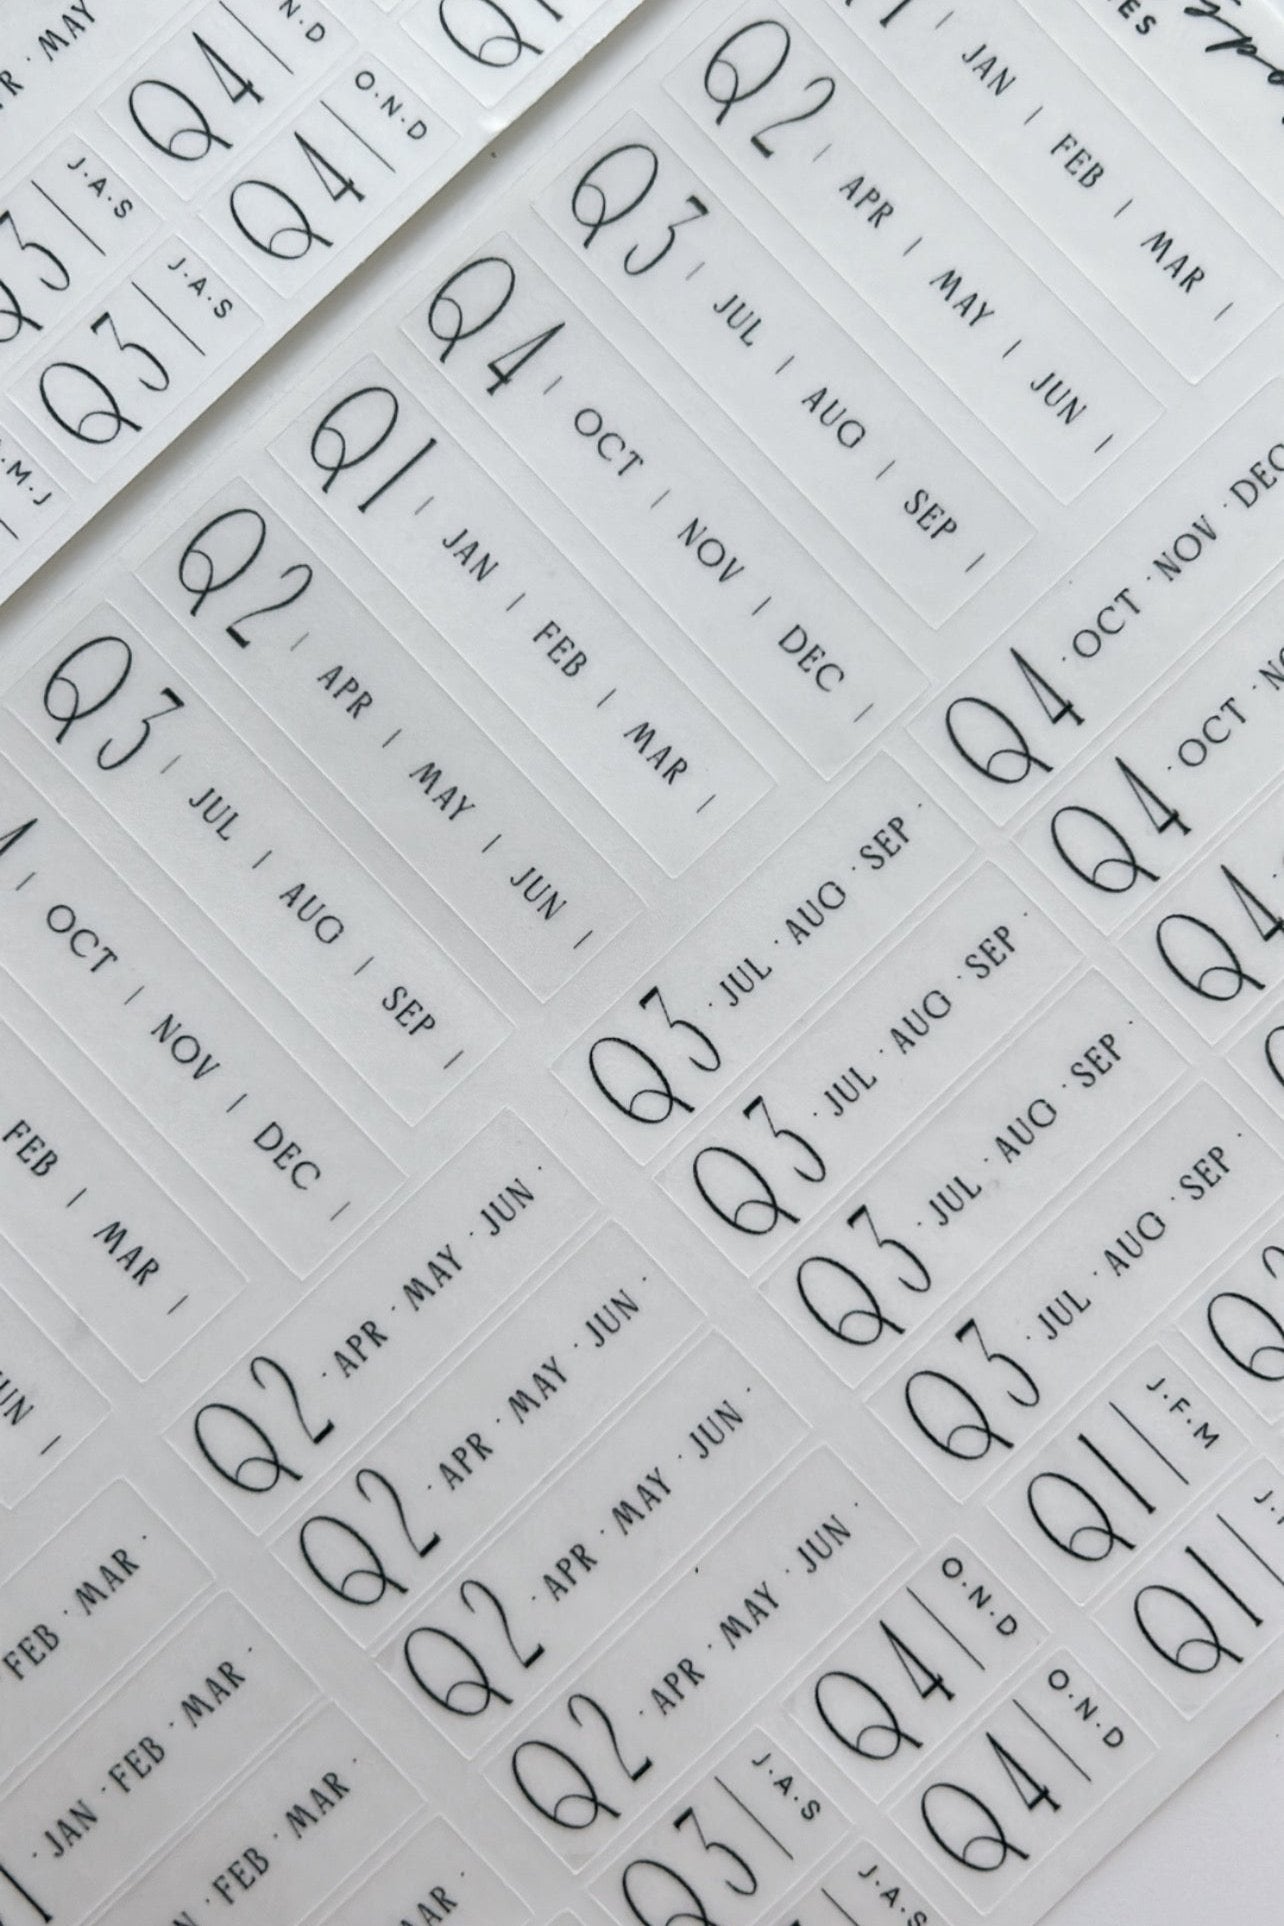 MAY
Q4 | N.D
Q4 | O.N.D
Q3 | J.A.S
Q3 | J.A.S
M.J
ES
JAN | FEB | MAR |
Q2 | APR | MAY | JUN |
Q3 | JUL | AUG | SEP |
Q4 | OCT | NOV | DEC |
Q1 | JAN | FEB | MAR |
Q2 | APR | MAY | JUN |
Q3 | JUL | AUG | SEP |
4 | OCT | NOV | DEC |
FEB | MAR |
UN |
Q4 · OCT · NOV · DEC
Q4 · OCT ·
Q4 ·
Q3 · JUL · AUG · SEP ·
Q3 · JUL · AUG · SEP ·
Q3 · JUL · AUG · SEP ·
Q3 · JUL · AUG · SEP ·
Q2 · APR · MAY · JUN ·
Q2 · APR · MAY · JUN ·
Q2 · APR · MAY · JUN ·
Q2 · APR · MAY · JUN ·
FEB · MAR ·
· JAN · FEB · MAR ·
· FEB · MAR ·
Q1 | J.F.M
Q1 |
Q4 | O.N.D
Q4 | O.N.D
Q3 | J.A.S
J.A.S